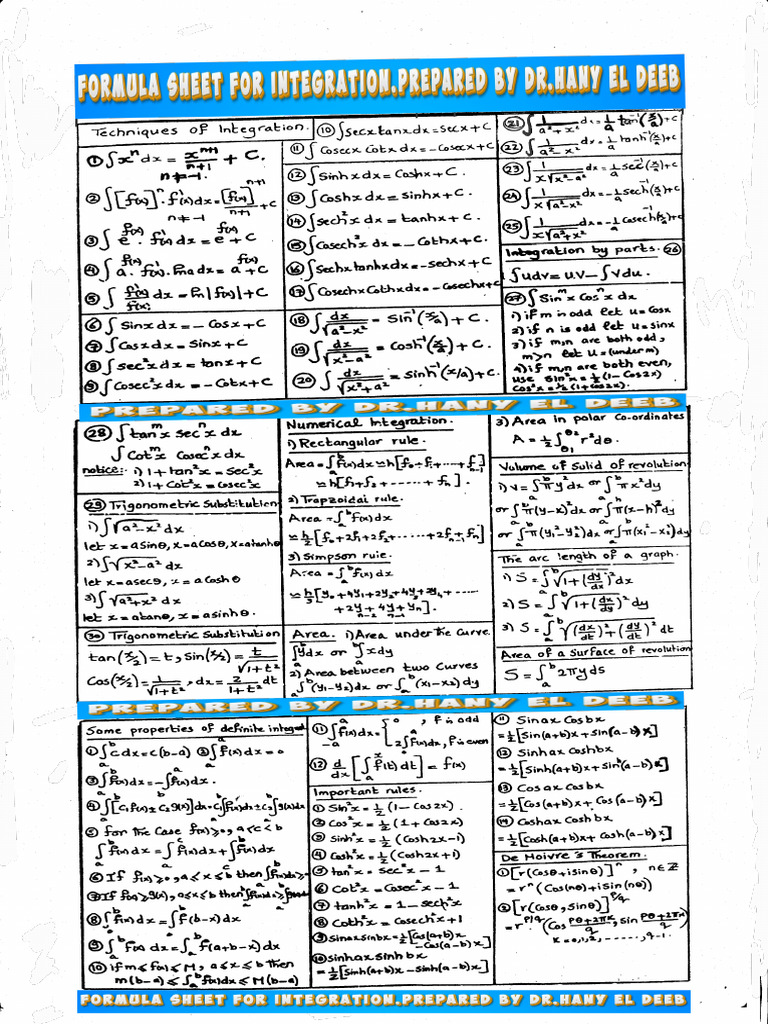 FORMULA SHEET FOR INTEGRATION.PREPARED BY DR.HANY EL DEEB
Techniques of Integration.
① ∫xⁿ dx = xⁿ⁺¹/n+1 + C.
n≠-1.
② ∫[f(x)]ⁿ. f'(x)dx = [f(x)]ⁿ⁺¹/n+1 + C
n≠-1
③ ∫e^f(x). f'(x)dx = e^f(x) + C
④ ∫a^f(x). f'(x). ln a dx = a^f(x) + C
⑤ ∫f'(x)/f(x) dx = ln|f(x)| + C
⑥ ∫Sinx dx = - Cosx + C
⑦ ∫Cosx dx = Sinx + C
⑧ ∫sec²x dx = tanx + C
⑨ ∫Cosec²x dx = - Cotx + C
⑩ ∫secx tanx dx = secx + C
⑪ ∫Cosecx Cotx dx = - Cosecx + C
⑫ ∫Sinhx dx = Coshx + C.
⑬ ∫Coshx dx = sinhx + C.
⑭ ∫sech²x dx = tanhx + C.
⑮ ∫Cosech²x dx = - Cothx + C.
⑯ ∫Sechx tanhx dx = - sechx + C.
⑰ ∫Cosechx Cothx dx = - Cosechx + C
⑱ ∫dx/√a²-x² = Sin⁻¹(x/a) + C.
⑲ ∫dx/√x²-a² = Cosh⁻¹(x/a) + C.
⑳ ∫dx/√x²+a² = Sinh⁻¹(x/a) + C.
㉑ ∫1/a²+x² dx = 1/a tan⁻¹(x/a) + C
㉒ ∫1/a²-x² dx = 1/a tanh⁻¹(x/a) + C
㉓ ∫1/x√x²-a² dx = 1/a sec⁻¹(x/a) + C
㉔ ∫1/x√a²-x² dx = -1/a sech⁻¹(x/a) + C
㉕ ∫1/x√a²+x² dx = -1/a Cosech⁻¹(x/a) + C
Integration by parts. ㉖
∫udv = u.v - ∫vdu.
㉗ ∫Sinᵐx Cosⁿx dx
1) if m in odd let u = Cosx
2) if n is odd let u = sinx
3) if m,n are both odd,
m>n let u = (under m)
4) if m,n are both even,
use Sin²x = ½(1-Cos2x)
Cos²x = ½(1+Cos2x).
PREPARED BY DR.HANY EL DEEB
㉘ ∫tanᵐx secⁿx dx
∫Cotᵐx Cosecⁿx dx
notice:. 1) 1+tan²x = Sec²x
2) 1+Cot²x = Cosec²x
㉙ Trigonometric Substitution
1) ∫√a²-x² dx
let x = aSinθ, x = aCosθ, x = atanhθ
2) ∫√x²-a² dx
let x = asecθ, x = aCoshθ
3) ∫√a²+x² dx
let x = atanθ, x = asinhθ.
㉚ Trigonometric Substitution
tan(x/2) = t, Sin(x/2) = t/√1+t²
Cos(x/2) = 1/√1+t², dx = 2/1+t² dt
Numerical Integration.
1) Rectangular rule.
Area = ∫ₐᵇ f(x)dx ≃ h[f₀+f₁+....+fₙ₋₁]
≃ h[f₁+f₂+......+fₙ].
2) Trapzoidal rule.
Area = ∫ₐᵇ f(x)dx
≃ h/2[f₀+2f₁+2f₂+......+2fₙ₋₁+fₙ]
3) Simpson rule.
Area = ∫ₐᵇ f(x)dx
≃ h/3[y₀+4y₁+2y₂+4y₃+2y₄+.....
+2yₙ₋₂+4yₙ₋₁+yₙ].
Area. 1) Area under the curve.
∫ₐᵇ ydx or ∫ₐᵇ xdy
2) Area between two Curves
∫ₐᵇ(y₁-y₂)dx or ∫ₐᵇ(x₁-x₂)dy
3) Area in polar Co-ordinates
A = ½∫θ₁^θ₂ r²dθ.
Volume of Solid of revolution
1) v = ∫ₐᵇ πy²dx or ∫ₐᵇ πx²dy
or ∫ₐᵇ π(y-k)²dx or ∫ₐᵇ π(x-h)²dy
or ∫ₐᵇ π(y₁²-y₂²)dx or ∫ₐᵇ π(x₁²-x₂²)dy
The arc length of a graph.
1) S = ∫ₐᵇ √1+(dy/dx)² dx
2) S = ∫ₐᵇ √1+(dx/dy)² dy
3) S = ∫ₐᵇ √(dx/dt)²+(dy/dt)² dt
Area of a Surface of revolution
S = ∫ₐᵇ 2πyds
PREPARED BY DR.HANY EL DEEB
Some properties of definite integral
① ∫ₐᵇ Cdx = c(b-a) ② ∫ₐᵃ f(x)dx = 0
③ ∫ₐᵇ f(x)dx = -∫ᵇₐ f(x)dx.
④ ∫ₐᵇ [C₁f(x) ± C₂g(x)]dx = C₁∫ₐᵇ f(x)dx ± C₂∫ₐᵇ g(x)dx
⑤ for the Case f(x) ≥ 0, a<c<b
∫ₐᵇ f(x)dx = ∫ₐᶜ f(x)dx + ∫f(x)dx
⑥ If f(x) ≥ 0, a≤x≤b then ∫ₐᵇ f(x)dx ≥
⑦ If f(x) ≥ g(x), a≤x≤b then ∫f(x)dx ≥
⑧ ∫f(x)dx = ∫f(b-x)dx
⑨ ∫ₐᵇ f(x)dx = ∫ₐᵇ f(a+b-x)dx
⑩ If m ≤ f(x) ≤ M, a≤x≤b then
m(b-a) ≤ ∫ₐᵇ f(x)dx ≤ M(b-a)
⑪ ∫₋ₐᵃ f(x)dx = { 0 , f is odd
2∫f(x)dx, f is even
⑫ d/dx [∫ₐˣ f(t)dt] = f(x)
Important rules.
① Sin²x = ½(1-Cos2x).
② Cos²x = ½(1+Cos2x)
③ Sinh²x = ½(Cosh2x-1)
④ Cosh²x = ½(Cosh2x+1)
⑤ tan²x = sec²x-1
⑥ Cot²x = Cosec²x-1
⑦ tanh²x = 1-sech²x
⑧ Coth²x = Cosech²x+1
⑨ sinax sinbx = ½[Cos(a+b)x
-Cos(a-b)x]
⑩ sinhax Sinh bx
= ½[Sinh(a+b)x - Sinh(a-b)x]
⑪ Sinax Cosbx
= ½[Sin(a+b)x + Sin(a-b)x]
⑫ Sinhax Coshbx
= ½[Sinh(a+b)x + Sinh(a-b)x]
⑬ Cosax Cosbx
= ½[Cos(a+b)x + Cos(a-b)x]
⑭ Coshax Coshbx
= ½[Cosh(a+b)x + Cosh(a-b)x]
De Moivre's Theorem.
① [r(Cosθ+iSinθ)]ⁿ, n∈Z
= rⁿ(Cos(nθ)+iSin(nθ))
② [r(Cosθ,Sinθ)]^p/q
= r^p/q (Cos pθ+2πk/q, Sin pθ+2πk/q)
k=0,1,2,.....,q-1.
FORMULA SHEET FOR INTEGRATION.PREPARED BY DR.HANY EL DEEB